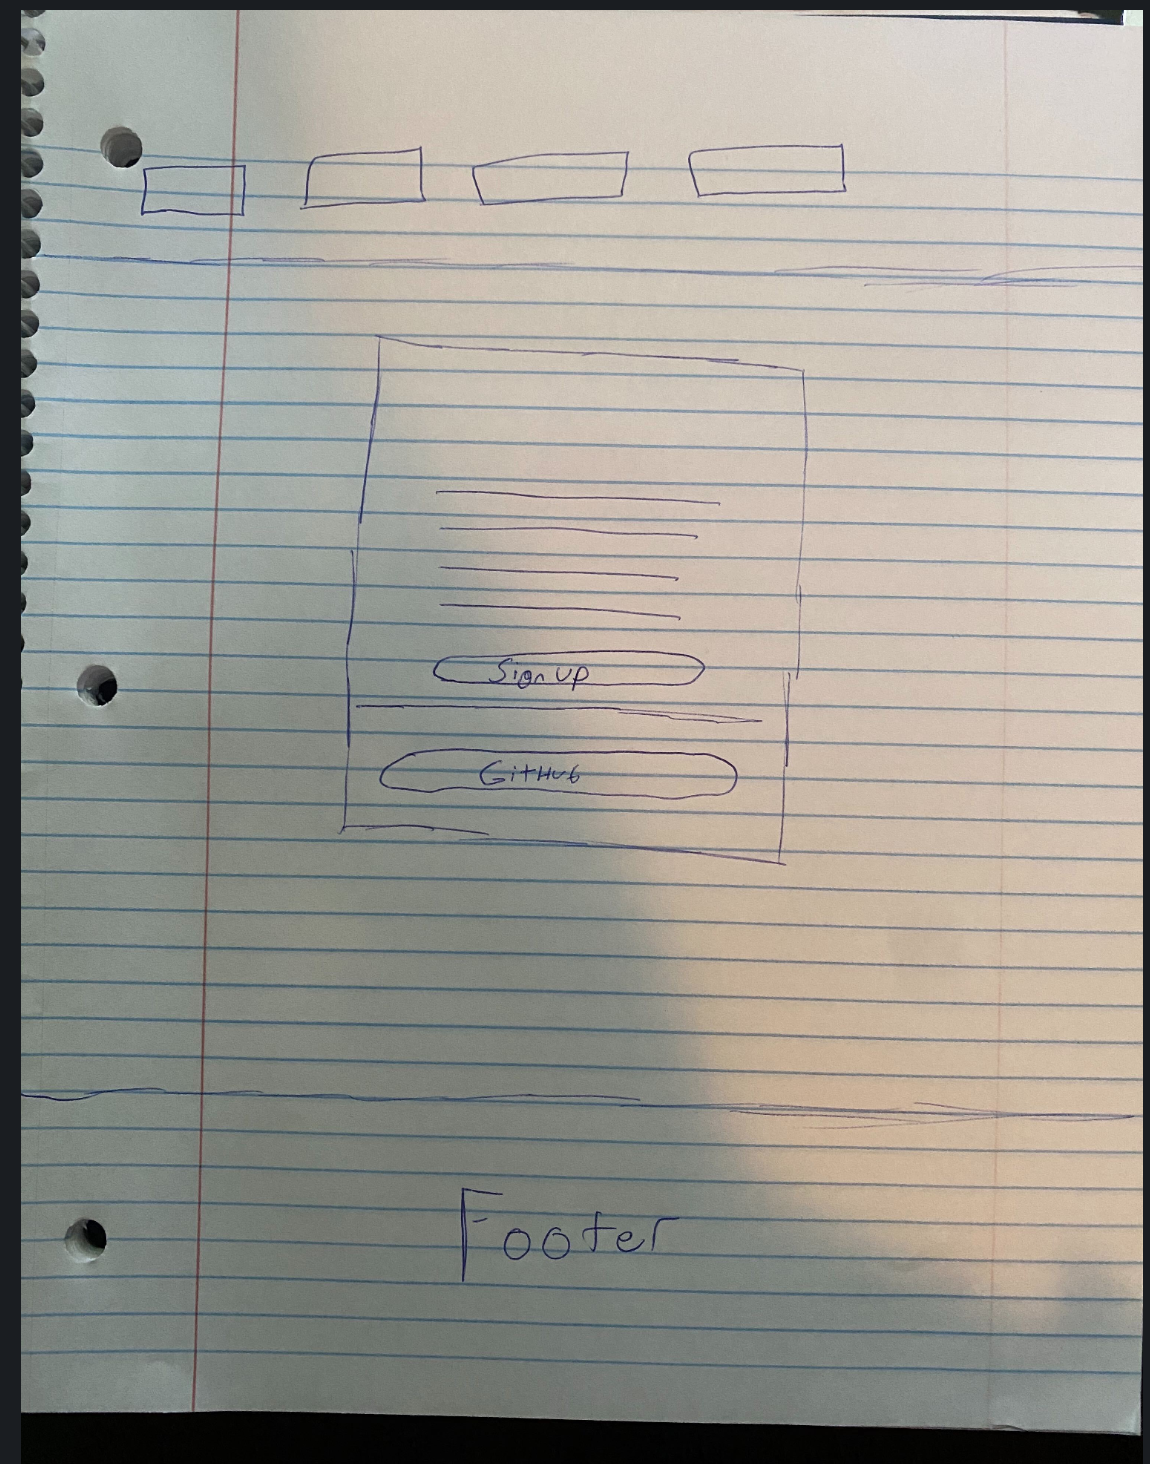 Sign up
GitHub
Footer